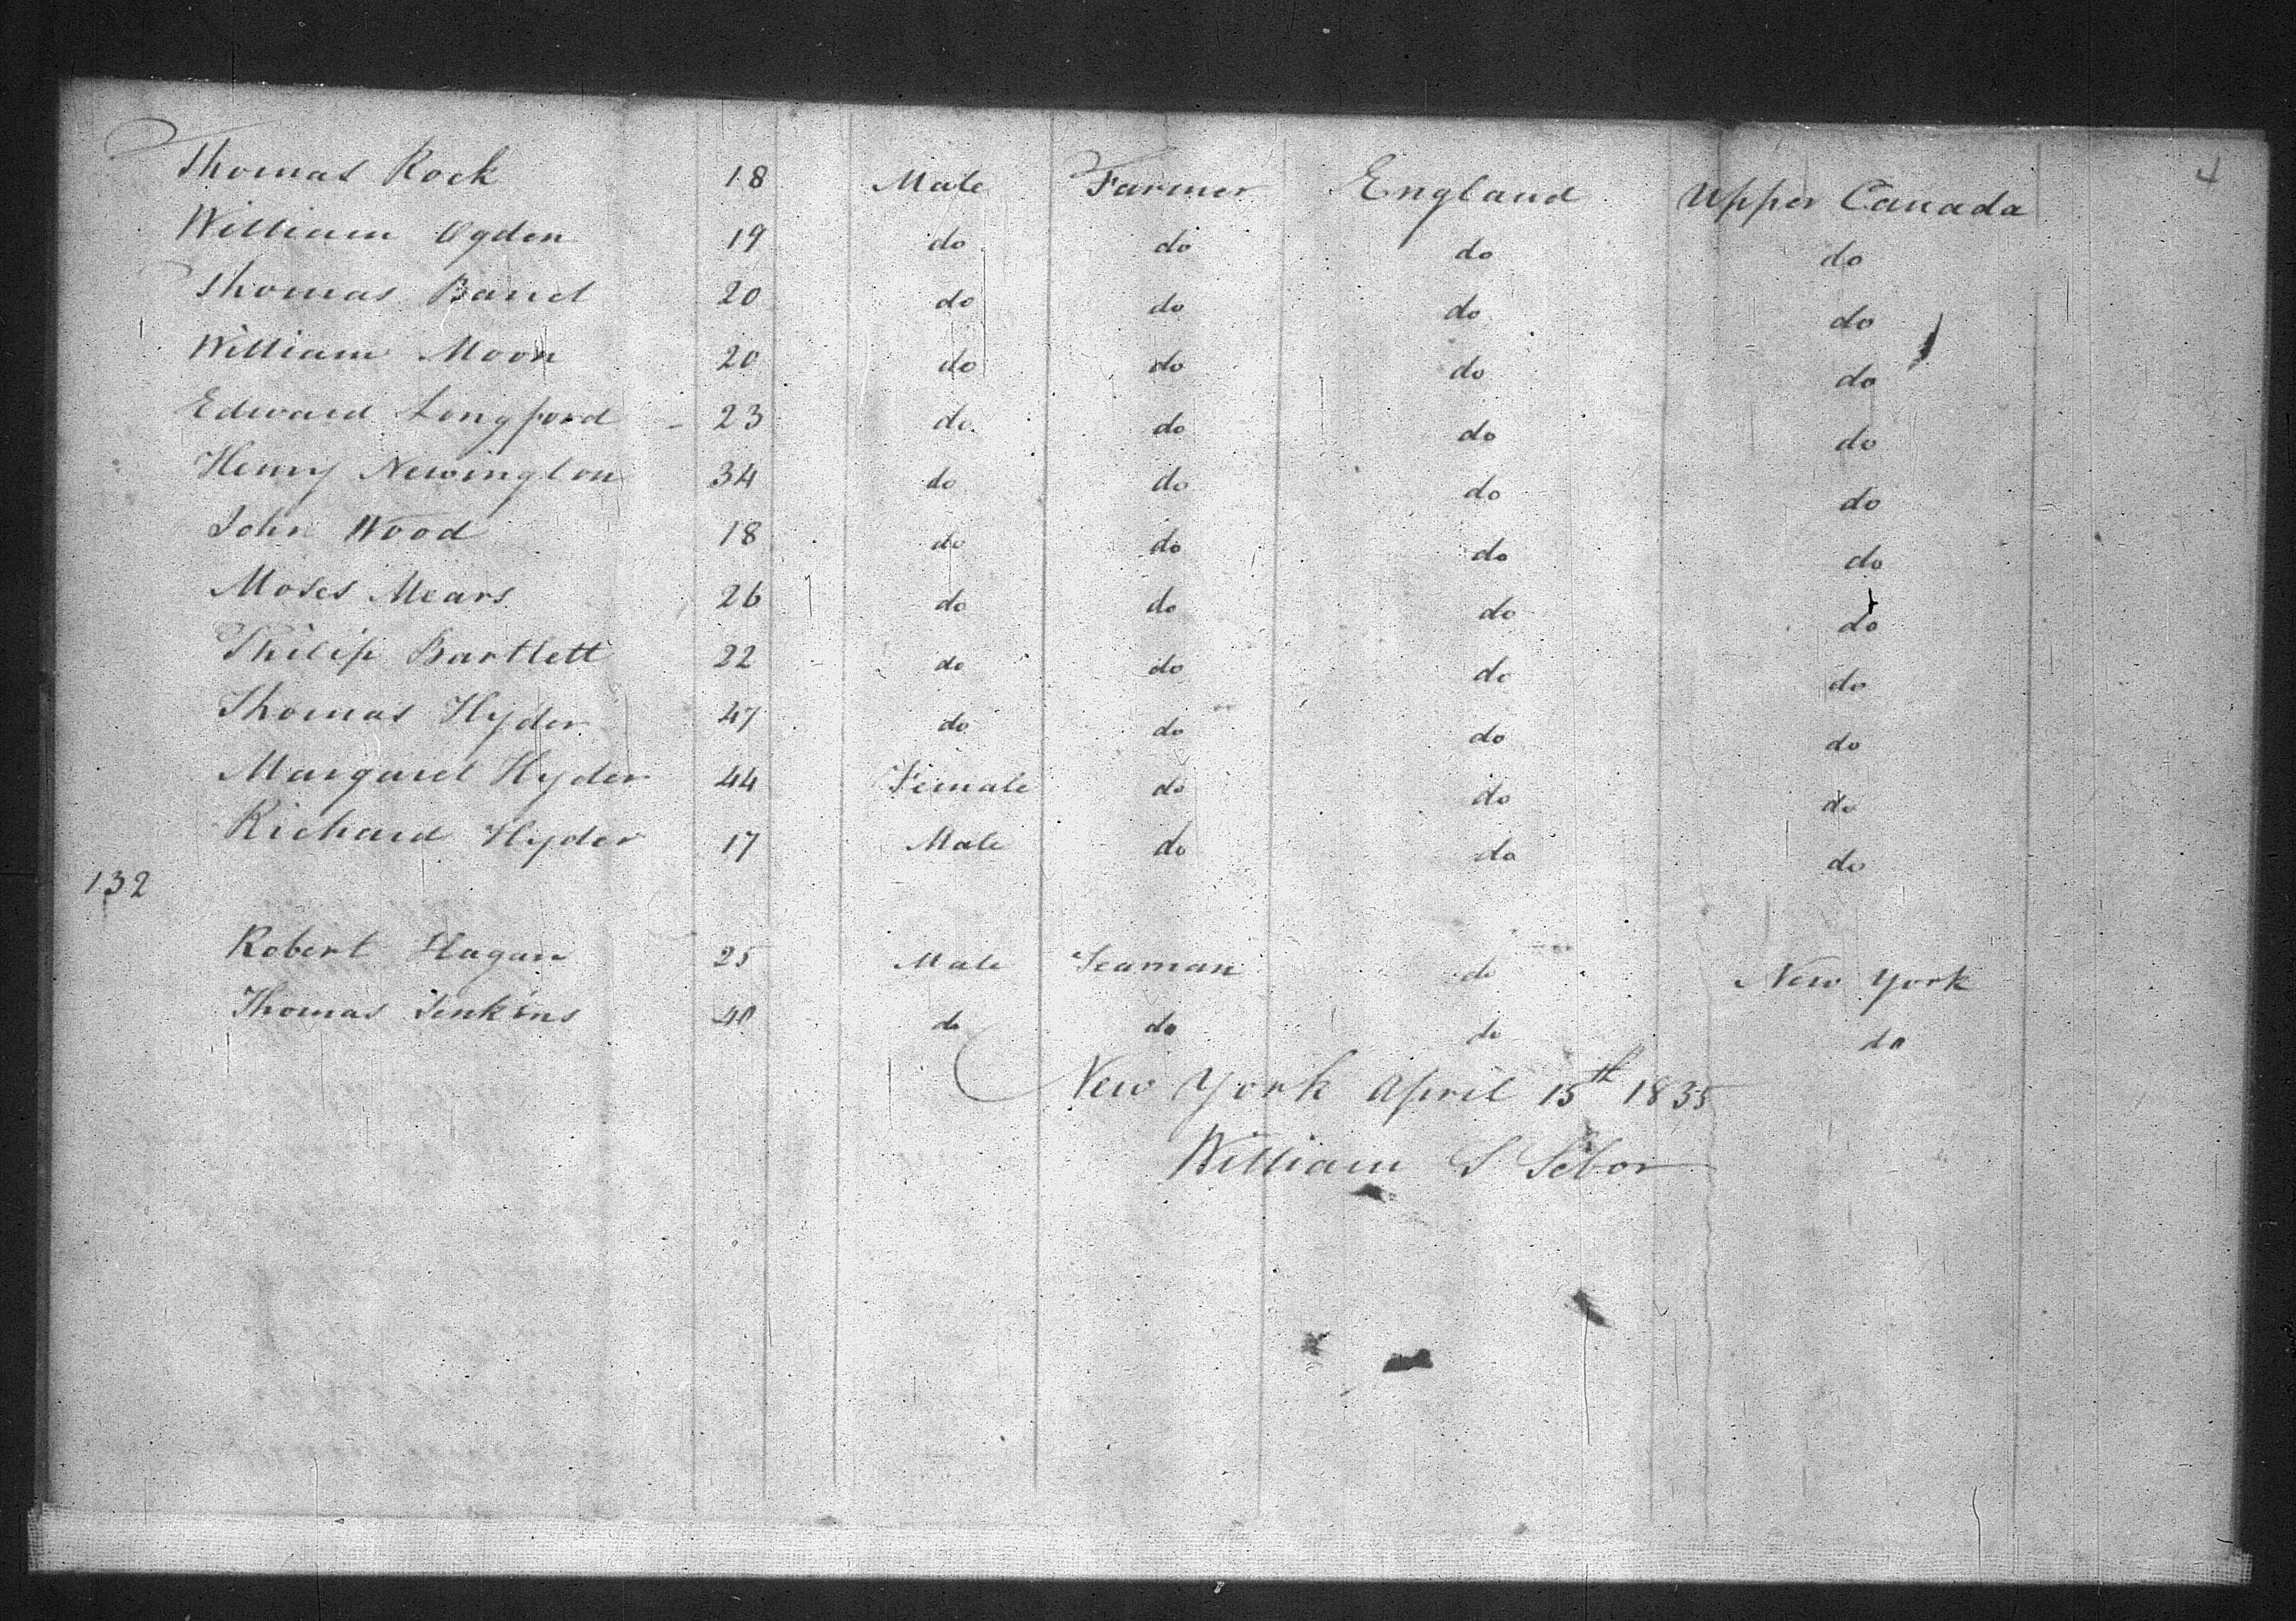 Thomas Rock 18 Male Farmer England Upper Canada
William Ogden 19 do do do do
Thomas Band 20 do do do do
William Moon 20 do do do do
Edward Longford 23 do do do do
Henry Newington 34 do do do do
John Wood 18 do do do do
Moses Mears 26 do do do do
Philip Bartlett 22 do do do do
Thomas Hyder 47 do do do do
Margaret Hyder 44 Female do do do
Richard Hyder 17 Male do do do
132
Robert Hagan 25 Male Seaman do New York
Thomas Jenkins 40 do do do do
New York April 15th 1835
William S Sebor